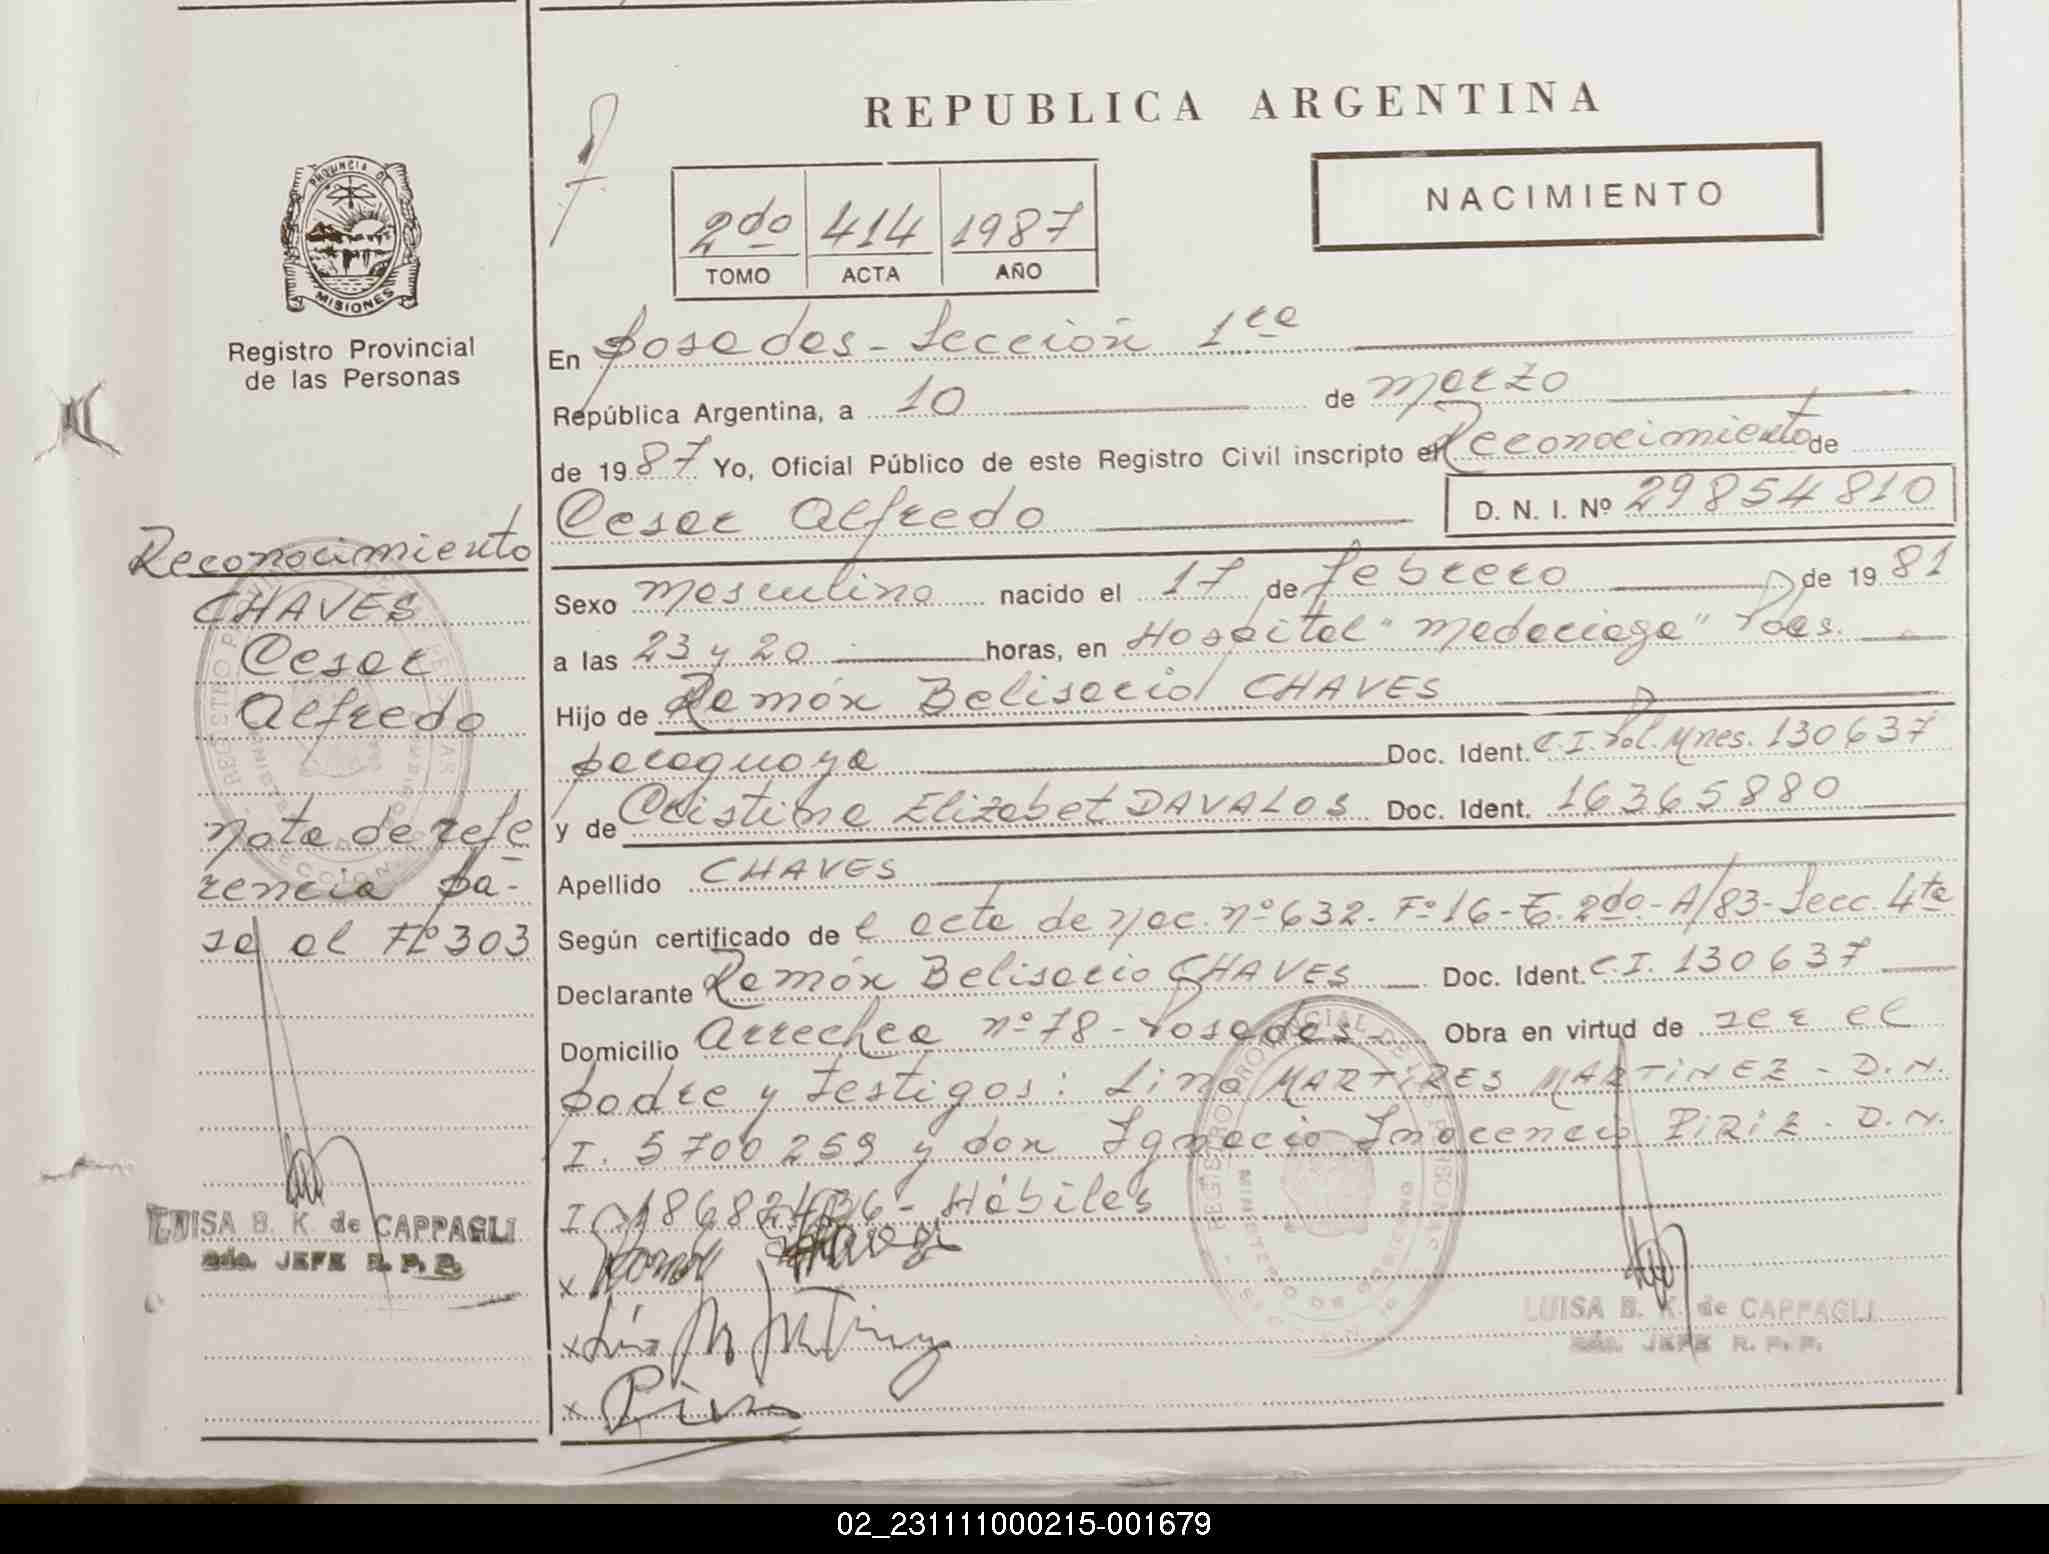 REPUBLICA ARGENTINA
NACIMIENTO
2do 414 1987
TOMO ACTA AÑO
PROVINCIA DE
MISIONES
Registro Provincial
de las Personas
Reconocimiento
CHAVES
Cesar
Alfredo
nota de refe
rencia pa-
sa al Fº 303
LUISA B. K. de CAPPAGLI
2da. JEFE R. P. P.
En Posadas - Sección 1ra
República Argentina, a 10 de marzo
de 1987 Yo, Oficial Público de este Registro Civil inscripto el Reconocimiento de
Cesar Alfredo D. N. I. Nº 29854810
Sexo masculino nacido el 17 de febrero de 1981
a las 23 y 20 horas, en Hospital "Madariaga" Pdas.
Hijo de Ramón Belisario CHAVES
paraguaya Doc. Ident. C.I. Pol. Mnes. 130637
y de Cristina Elizabet DAVALOS Doc. Ident. 16365880
Apellido CHAVES
Según certificado de l acta de nac. nº 632. Fº 16-T. 2do-A/83-Secc. 4ta
Declarante Ramón Belisario CHAVES Doc. Ident. C.I. 130637
Domicilio Arrechea nº 78 - Posadas Obra en virtud de ser el
padre y testigos: Lino MARTIRES MARTINEZ - D.N.
I. 5700259 y don Ignacio Inocencio PIRIZ - D.N.
I. - Hábiles
x
x
x
LUISA B. K. de CAPPAGLI
2da. JEFE R. P. P.
02_231111000215-001679